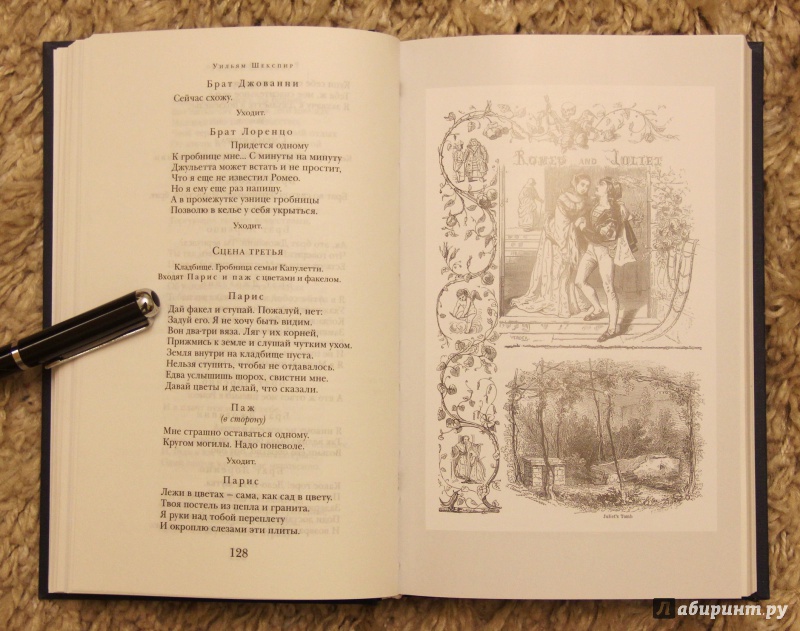 Уильям Шекспир
Брат Джованни
Сейчас схожу.
Уходит.
Брат Лоренцо
Придется одному
К гробнице мне... С минуты на минуту
Джульетта может встать и не простит,
Что я еще не известил Ромео.
Но я ему еще раз напишу.
А в промежутке узнице гробницы
Позволю в келье у себя укрыться.
Уходит.
Сцена третья
Кладбище. Гробница семьи Капулетти.
Входят Парис и паж с цветами и факелом.
Парис
Дай факел и ступай. Пожалуй, нет:
Задуй его. Я не хочу быть видим.
Вон два-три вяза. Ляг у их корней,
Прижмись к земле и слушай чутким ухом.
Земля внутри на кладбище пуста.
Нельзя ступить, чтобы не отдавалось.
Едва услышишь шорох, свистни мне.
Давай цветы и делай, что сказали.
Паж
(в сторону)
Мне страшно оставаться одному.
Кругом могилы. Надо поневоле.
Уходит.
Парис
Лежи в цветах – сама, как сад в цвету.
Твоя постель из пепла и гранита.
Я руки над тобой переплету
И окроплю слезами эти плиты.
128
Romeo and Juliet
Juliet's Tomb.
Лабиринт.ру